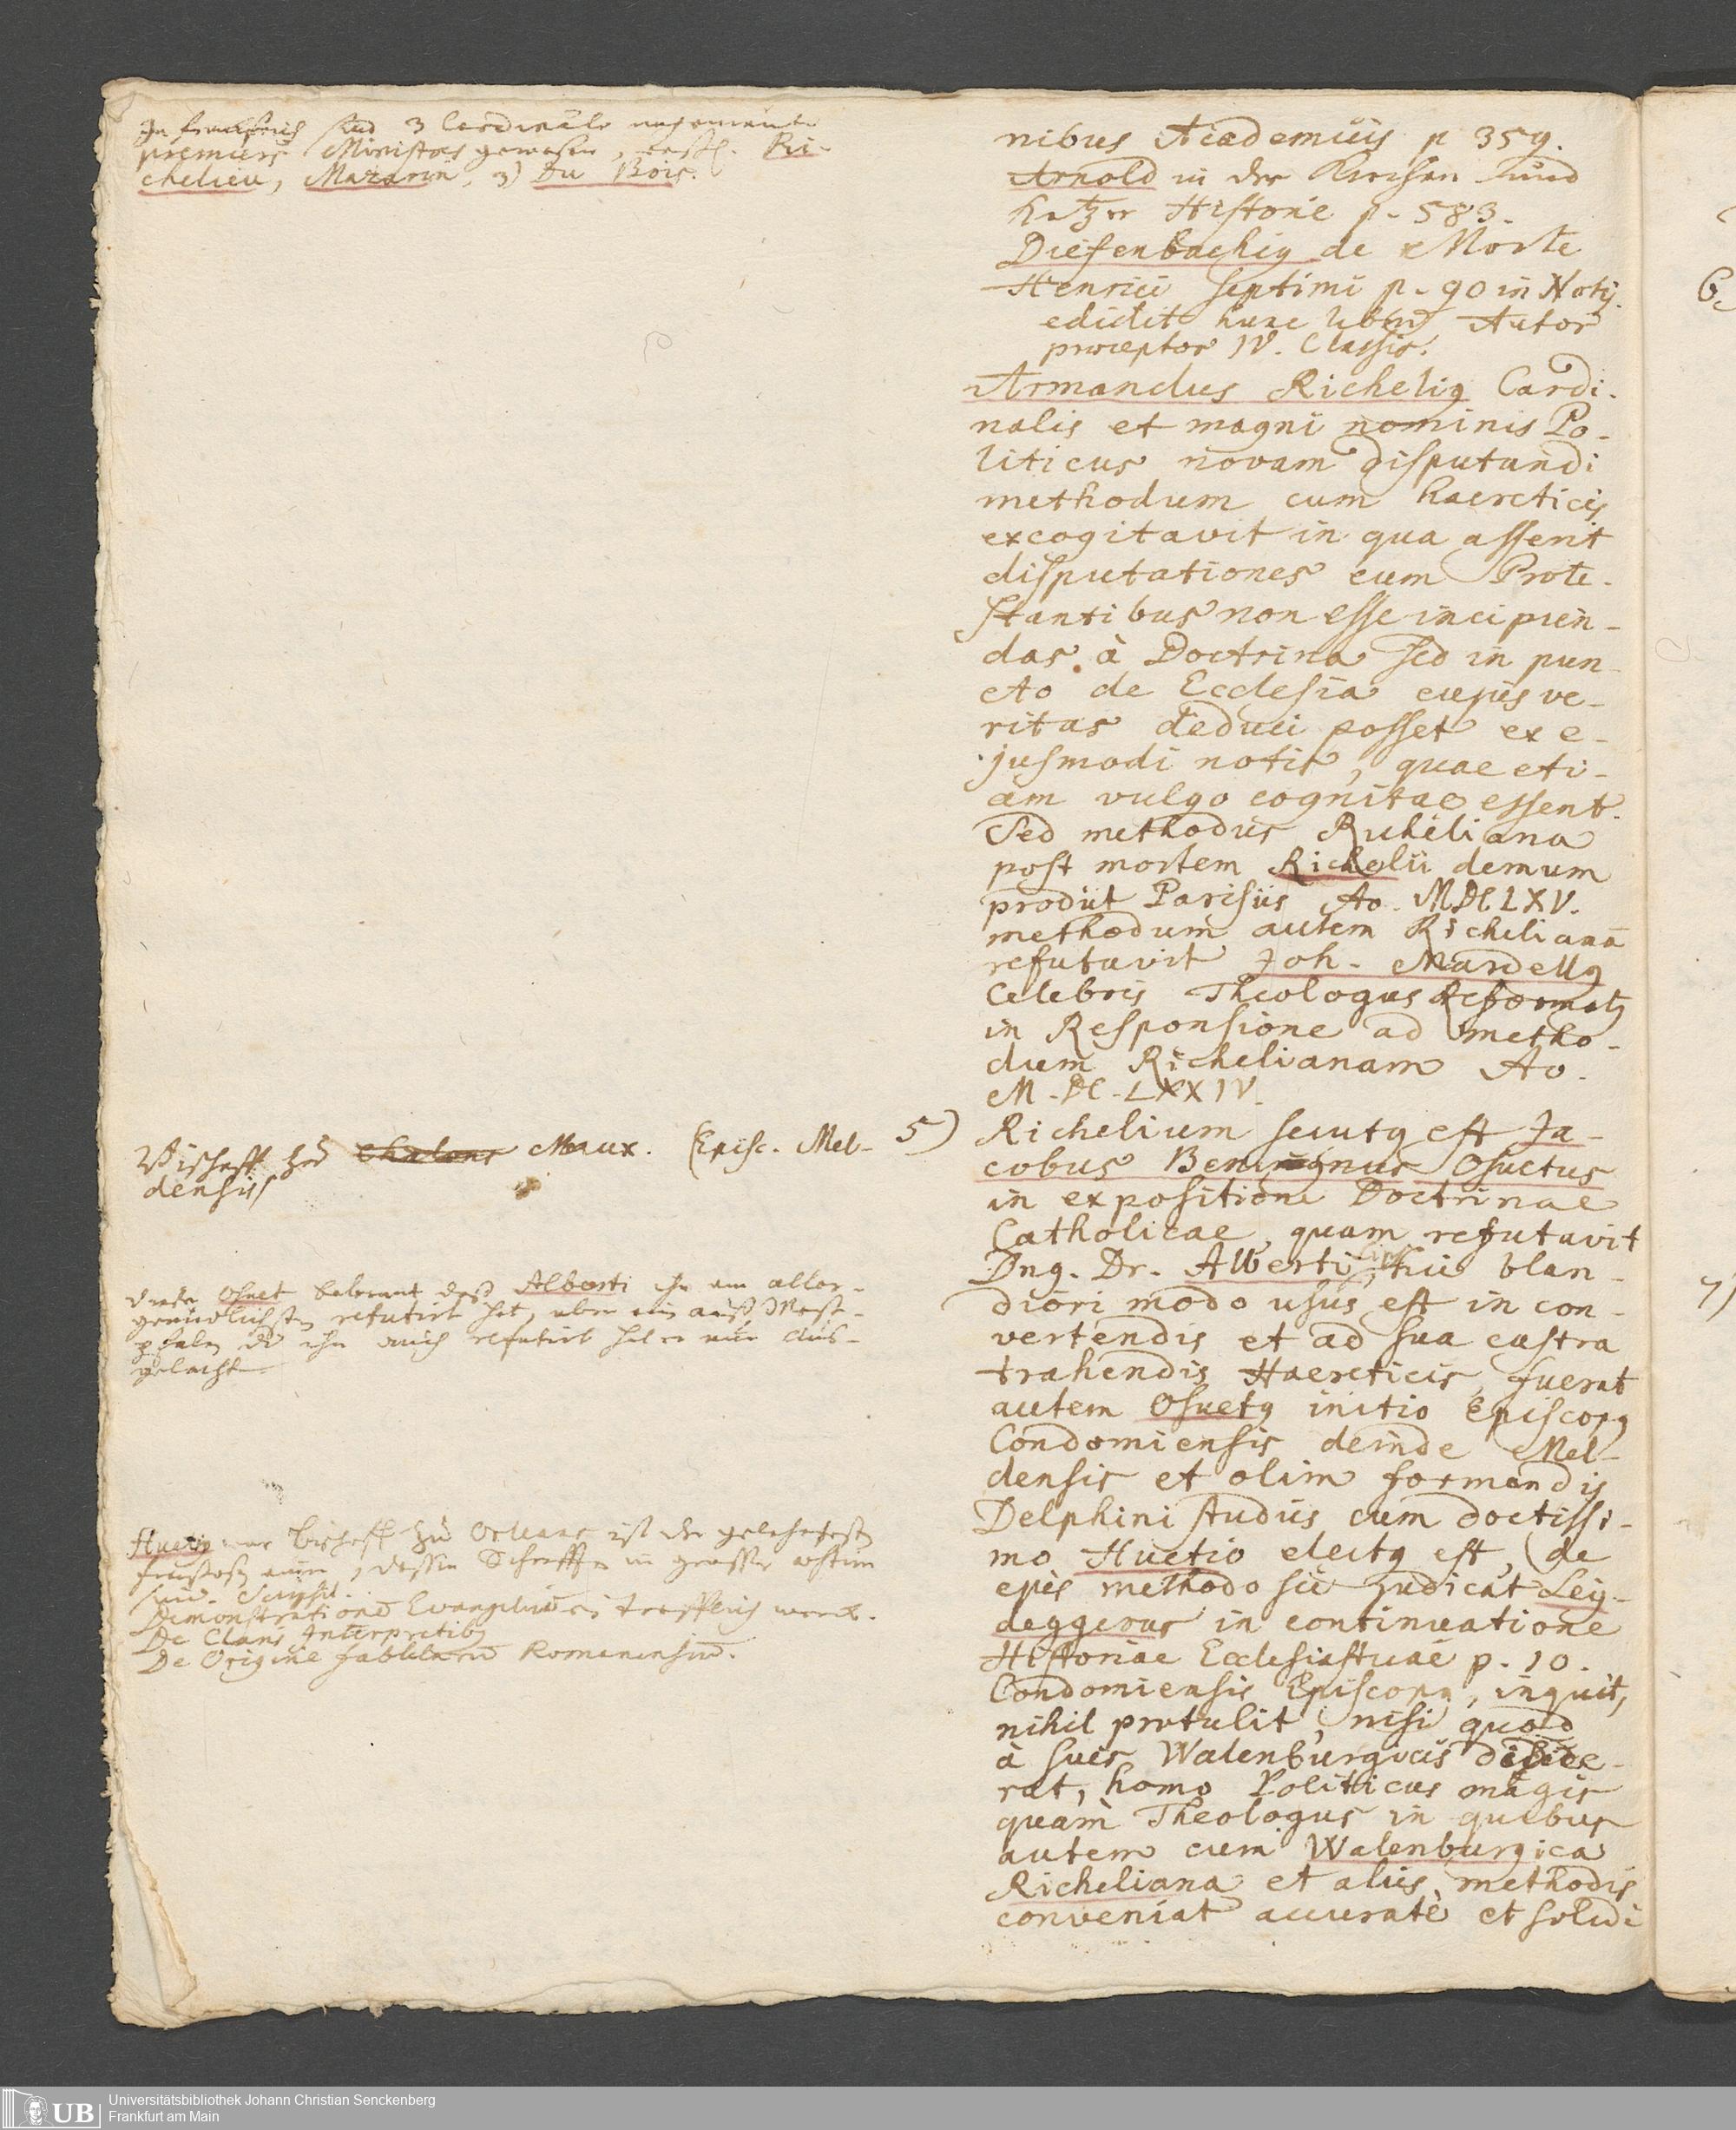 In Franckreich sind 3 Cardinäle nacheinander
premiers Ministres gewesen, erstl. Ri-
chelieu, Mazarin, 3) Du Bois.
nibus Academiis p 359.
Arnold in der Kirchen und
Ketzer Historie p. 583.
Diefenbachig de Morte
Henrici septimi p. 90 in Notis.
edidit hunc libru Autor
praeceptor IV. Classis.
Armandus Richelig Cardi-
nalis et magni nominis Po-
liticus novam disputandi
methodum cum haereticis
excogitavit in qua asserit
disputationes cum Prote-
stantibus non esse incipien-
das à Doctrina sed in pun-
cto de Ecclesia cujus ve-
ritas deduci posset ex e-
jusmodi notis, quae eti-
am vulgo cognitae essent.
Sed methodus Richeliana
post mortem Richelii demum
prodiit Parisiis Ao. MDCLXV.
methodum autem Richelianā
refutavit Joh. Mardellg
Celebris Theologus Reformatg
in Responsione ad metho-
dum Richelianam Ao.
M.DC.LXXIV.
Bischoff zu Chalons Meaux. (Episc. Mel-
densis)
5) Richelium secutg est Ja-
cobus Benignus Osuetus
in expositione Doctrinae
Catholicae, quam refutavit
Dng. Dr. Alberti, hic blan-
diori modo usus est in con-
vertendis et ad sua castra
trahendis Haereticis, fuerat
autem Osuetg initio Episcopg
Condomiensis deinde Mel-
densis et olim formandis
Delphini studiis cum doctissi-
mo Huetio electg est, de
ejus methodo sic judicat Hey-
deggerus in continuatione
Historiae Ecclesiasticae p. 10.
Condomiensis Episcopg, inquit,
nihil protulit, nisi quod
à suis Walenburgicis didice-
rat, homo Politicus magis
quam Theologus in quibus
autem cum Walenburgica
Richeliana et aliis methodis
conveniat accuratè et solidi
Osuet bekennt daß Alberti ihn am aller-
gründlichsten refutirt hat, aber ein auß West-
phalen der ihn auch refutirt hat er nur aus-
gelacht
Huetig war Bischoff zu Orleans ist der gelehrteste
Frantzos, dessen Schrifften in grosser aestim
sind. Scripsit.
Demonstrationē Evangelicā ein trefflich werck.
De Claris Interpretibg
De Origine fabularū Romanensiū.
Universitätsbibliothek Johann Christian Senckenberg
Frankfurt am Main
UB